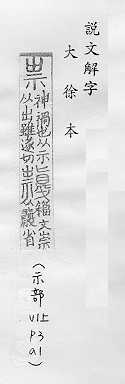 説文解字
大徐本
祟
神禍也从示
从出雖遂切
籒文祟
从 省
(示部 V1上 P3 a1)